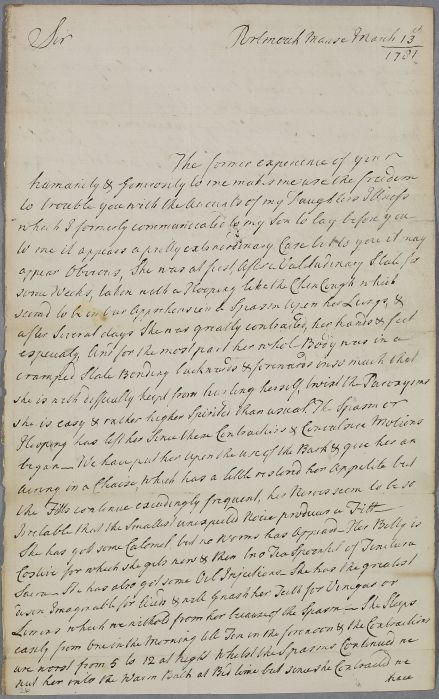 Sir Portmoak Manse March 13th
1781
The former experience of your
humanity & Generosity to me makes me use the freedom
to trouble you with the Accounts of my Daughters Illness
which I formerly communicated to my Son to lay before you
to me it appears a pretty extraordinary Case but to you it may
appear Obvious, She was at first, After a Valitudinary State for
some Weeks, taken with a Hooping like the Chin Cough which
seemd to be in our Apprehension a Spasm upon her Lungs, &
after Several days She was greatly contracted, her hands & feet
especialy. And for the most part her whol Body was in a
cramped State Bending backwards & forewards in so much that
she is with difficulty kept from hurting herself, twixt the Paroxysms
she is easy & rather higher Spirited than usual. The Spasm or
Hooping has left her Since these Contractions & Convulsive Motions
began — We have put her upon the use of the Bark & give her an
airing in a Chaise, which has a little restord her Appetite but
the Fitts continue exceedingly frequent, her Nerves seem to be so
Irretable that the Smallest unexpected Noice produces a Fitt
She has got some Calomel, but no Worms has Appeard. Her Belly is
Costive for which she gets now & then two Tea Spoonful of Tinctura
Sacra — She has also got some Oil Injections — She has the greatest
desire Imaginable for Acids & will Gnash her Teeth for Vinegar or
Lemons which we withold from her because of the Spasm — She Sleeps
easily from One in the Morning till Ten in the forenoon & the Contractions
are worst from 5 to 12 at Night Whilst the Spasms Continued we
put her into the Warm Bath at Bed time but since she Contracted we
have